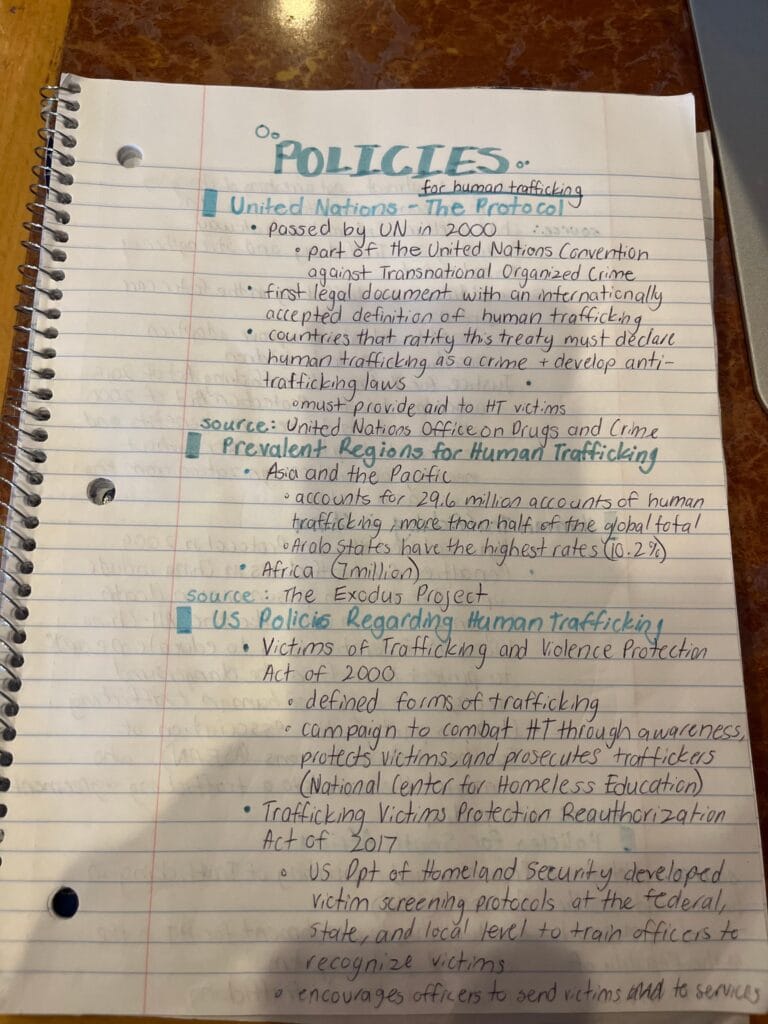 POLICIES
for human trafficking
United Nations - The Protocol
• passed by UN in 2000
• part of the United Nations Convention
against Transnational Organized Crime
• first legal document with an internationally
accepted definition of human trafficking
• countries that ratify this treaty must declare
human trafficking as a crime + develop anti-
trafficking laws
• must provide aid to HT victims
source: United Nations Office on Drugs and Crime
Prevalent Regions for Human Trafficking
• Asia and the Pacific
• accounts for 29.6 million accounts of human
trafficking, more than half of the global total
• Arab States have the highest rates (10.2%)
• Africa (7million)
source: The Exodus Project
US Policis Regarding Human Trafficking
• Victims of Trafficking and Violence Protection
Act of 2000
• defined forms of trafficking
• campaign to combat HT through awareness,
protects victims, and prosecutes traffickers
(National Center for Homeless Education)
• Trafficking Victims Protection Reauthorization
Act of 2017
• US Dpt of Homeland Security developed
victim screening protocols at the federal,
state, and local level to train officers to
recognize victims
• encourages officers to send victims and to services